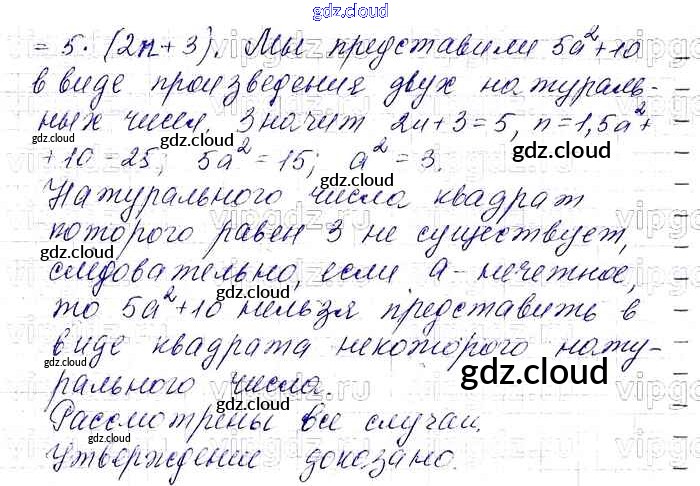 gdz.cloud
= 5 · (2n + 3). Мы представили 5a² + 10
в виде произведения двух натураль-
ных чисел. Значит 2n + 3 = 5, n = 1, 5a² +
+ 10 = 25; 5a² = 15; a² = 3.
Натурального числа квадрат
которого равен 3 не существует,
следовательно, если a - нечетное,
то 5a² + 10 нельзя представить в
виде квадрата некоторого нату-
рального числа.
Рассмотрены все случаи.
Утверждение доказано.
gdz.cloud